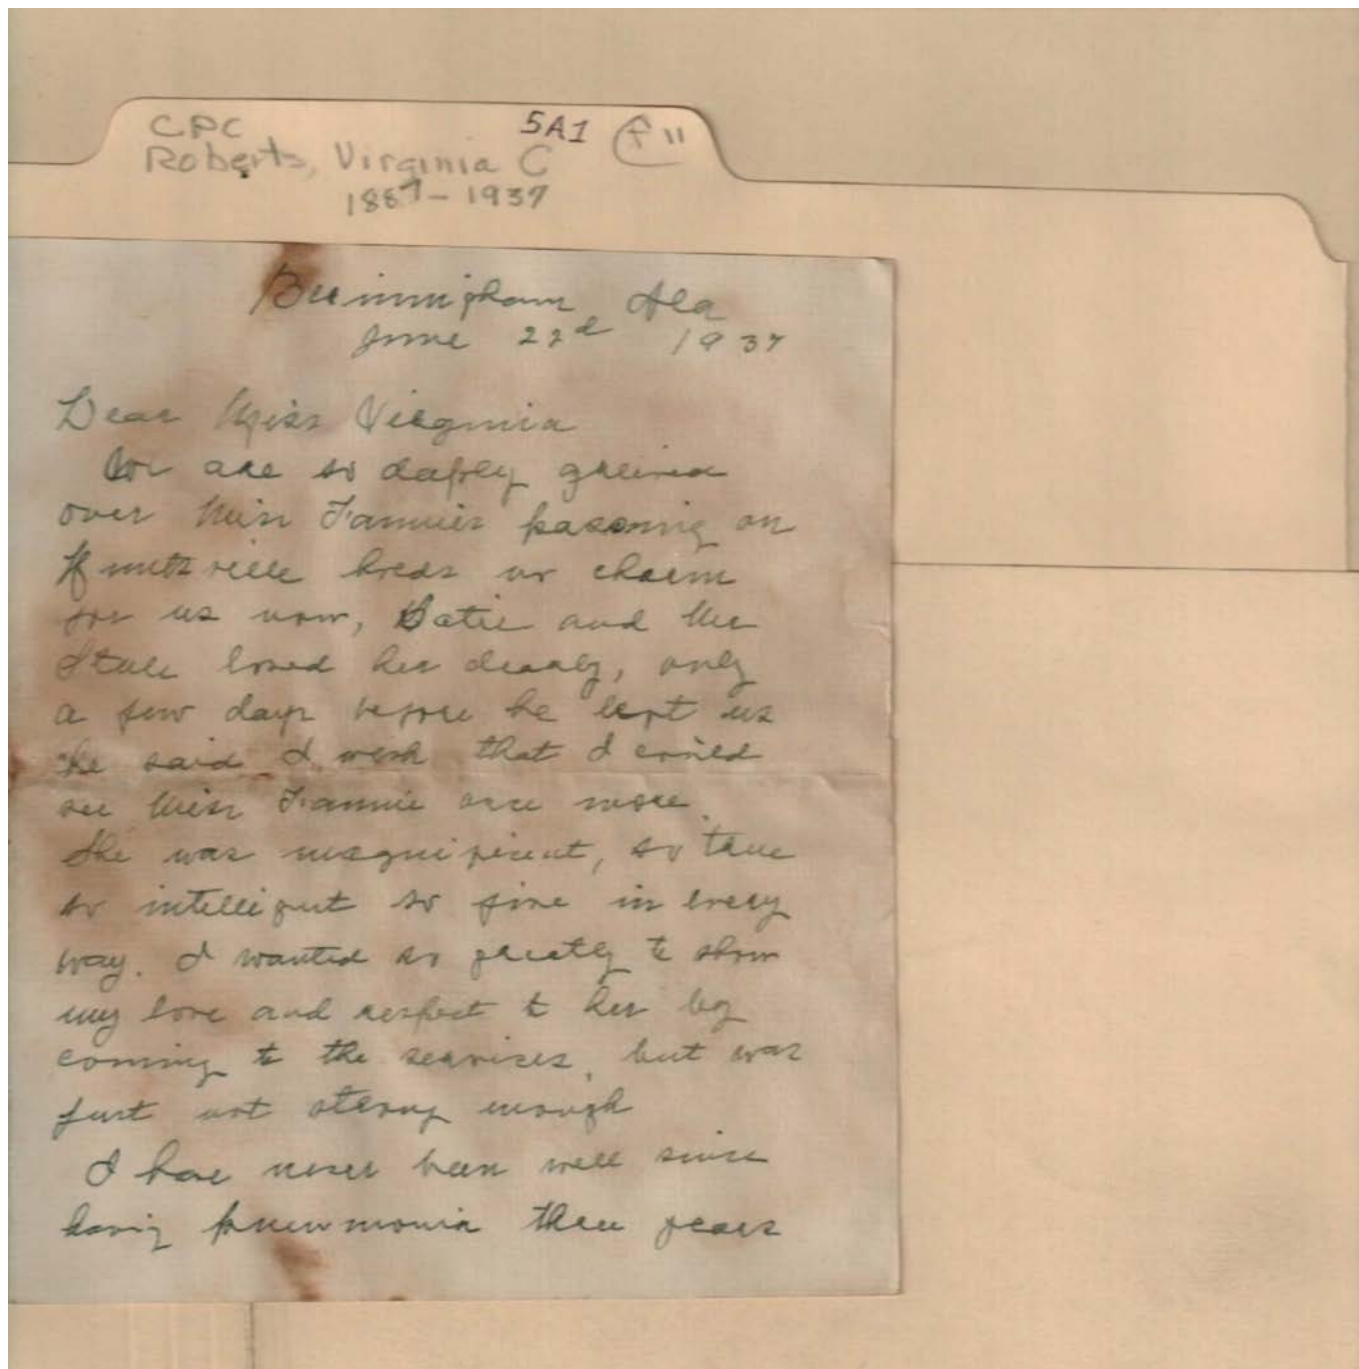 CPC 5A1
Roberts, Virginia C
1887-1937
Birmingham, Ala
June 22d 1937
Dear Miss Virginia
We are so deeply greived
over Miss Fannies passing on
Huntsville holds no charm
for us now, Katie and Mr
loved her dearly, only
a few days before he left us
he said I wish that I could
see Miss Fannie once more.
She was magnificent, so true
so intelligent so fine in every
way. I wanted so greatly to show
my love and respect to her by
coming to the services, but was
just not strong enough
I have never been well since
having pneumonia three years